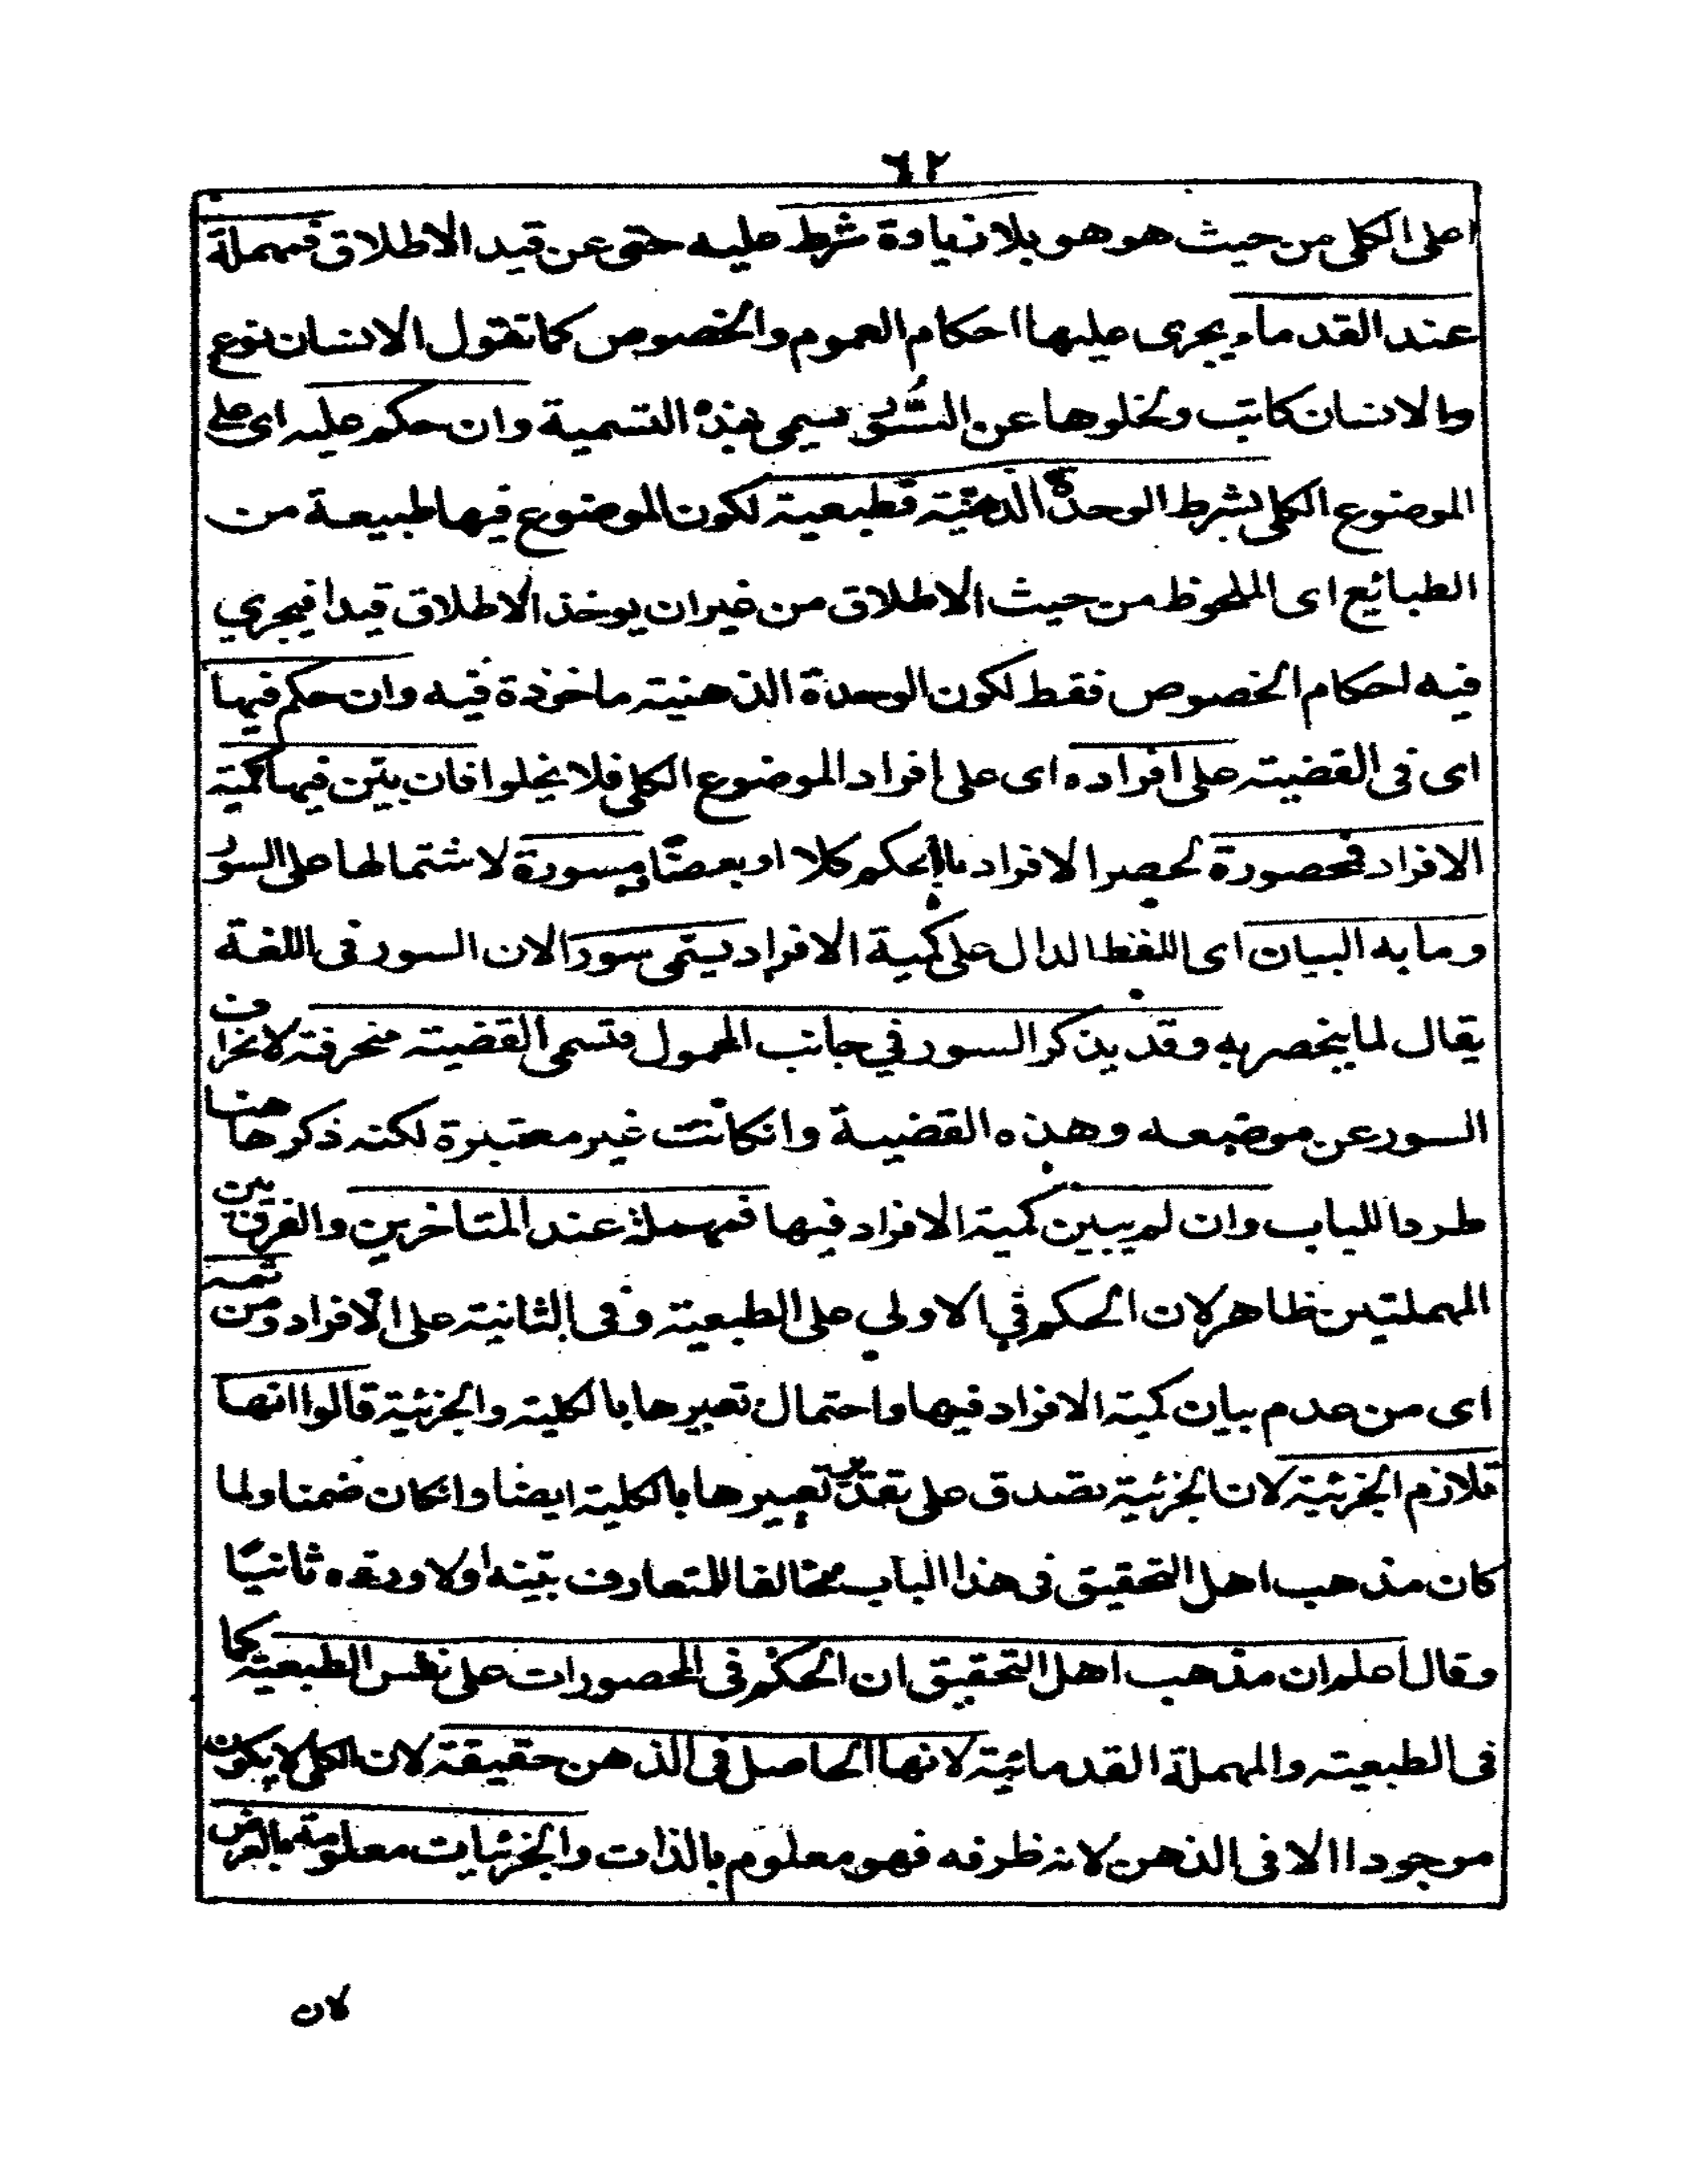 ٦٢
اعلى الكلى من حيث هو هو بلا زيادة شرط عليه حتى عن قيد الاطلاق فمهملة
عند القدماء ويجرى عليها احكام العموم والخصوص كما تقول الانسان نوع
والانسان كاتب ولخلوها عن التشوق سمى بهذه التسمية وان حكم عليه اى على
الموضوع الكلى بشرط الوحدة الذهنية فطبيعية لكون الموضوع فيها طبيعة من
الطبائع اى الملحوظ من حيث الاطلاق من غير ان يوخذ الاطلاق قيدا فيجري
فيه احكام الخصوص فقط لكون الوحدة الذهنية ماخوذة فيه وان حكم فيها
اى فى القضية على افراده اى على افراد الموضوع الكلى فلا يخلوا فان بين فيها كمية
الافراد فمحصورة لحصر الافراد بالحكم كلا او بعضًا ومسورة لاشتمالها على السور
وما به البيان اى اللفظ الدال على كمية الافراد يسمى سورا لان السور فى اللغة
يقال لما ينحصر به وقد يذكر السور في جانب المحمول فتسمى القضية منحرفة لانحراف
السور عن موضعه وهذه القضية وانكانت غير معتبرة لكنه ذكرها هنا
طردا للباب وان لم يبين كمية الافراد فيها فمهملة عند المتاخرين والفرق بين
المهملتين ظاهر لان الحكم في الاولي على الطبعية وفى الثانية على الافراد ومن ثمه
اى من عدم بيان كمية الافراد فيها واحتمال تعبيرها بالكلية والجزئية قالوا انها
تلازم الجزئية لان الجزئية تصدق على تقدير تعبيرها بالكلية ايضا وانكان ضمنا ولما
كان مذهب اهل التحقيق فى هذا الباب مخالفا للمتعارف بينه اولا ورده ثانيًا
وقال اعلم ان مذهب اهل التحقيق ان الحكم فى المحصورات على نفس الطبعية كما
فى الطبعية والمهملة القدمائية لانها الحاصل فى الذهن حقيقة لان الكلى لا يكون
موجودا الا فى الذهن لانه ظرفه فهو معلوم بالذات والجزئيات معلومة بالعرض
لان